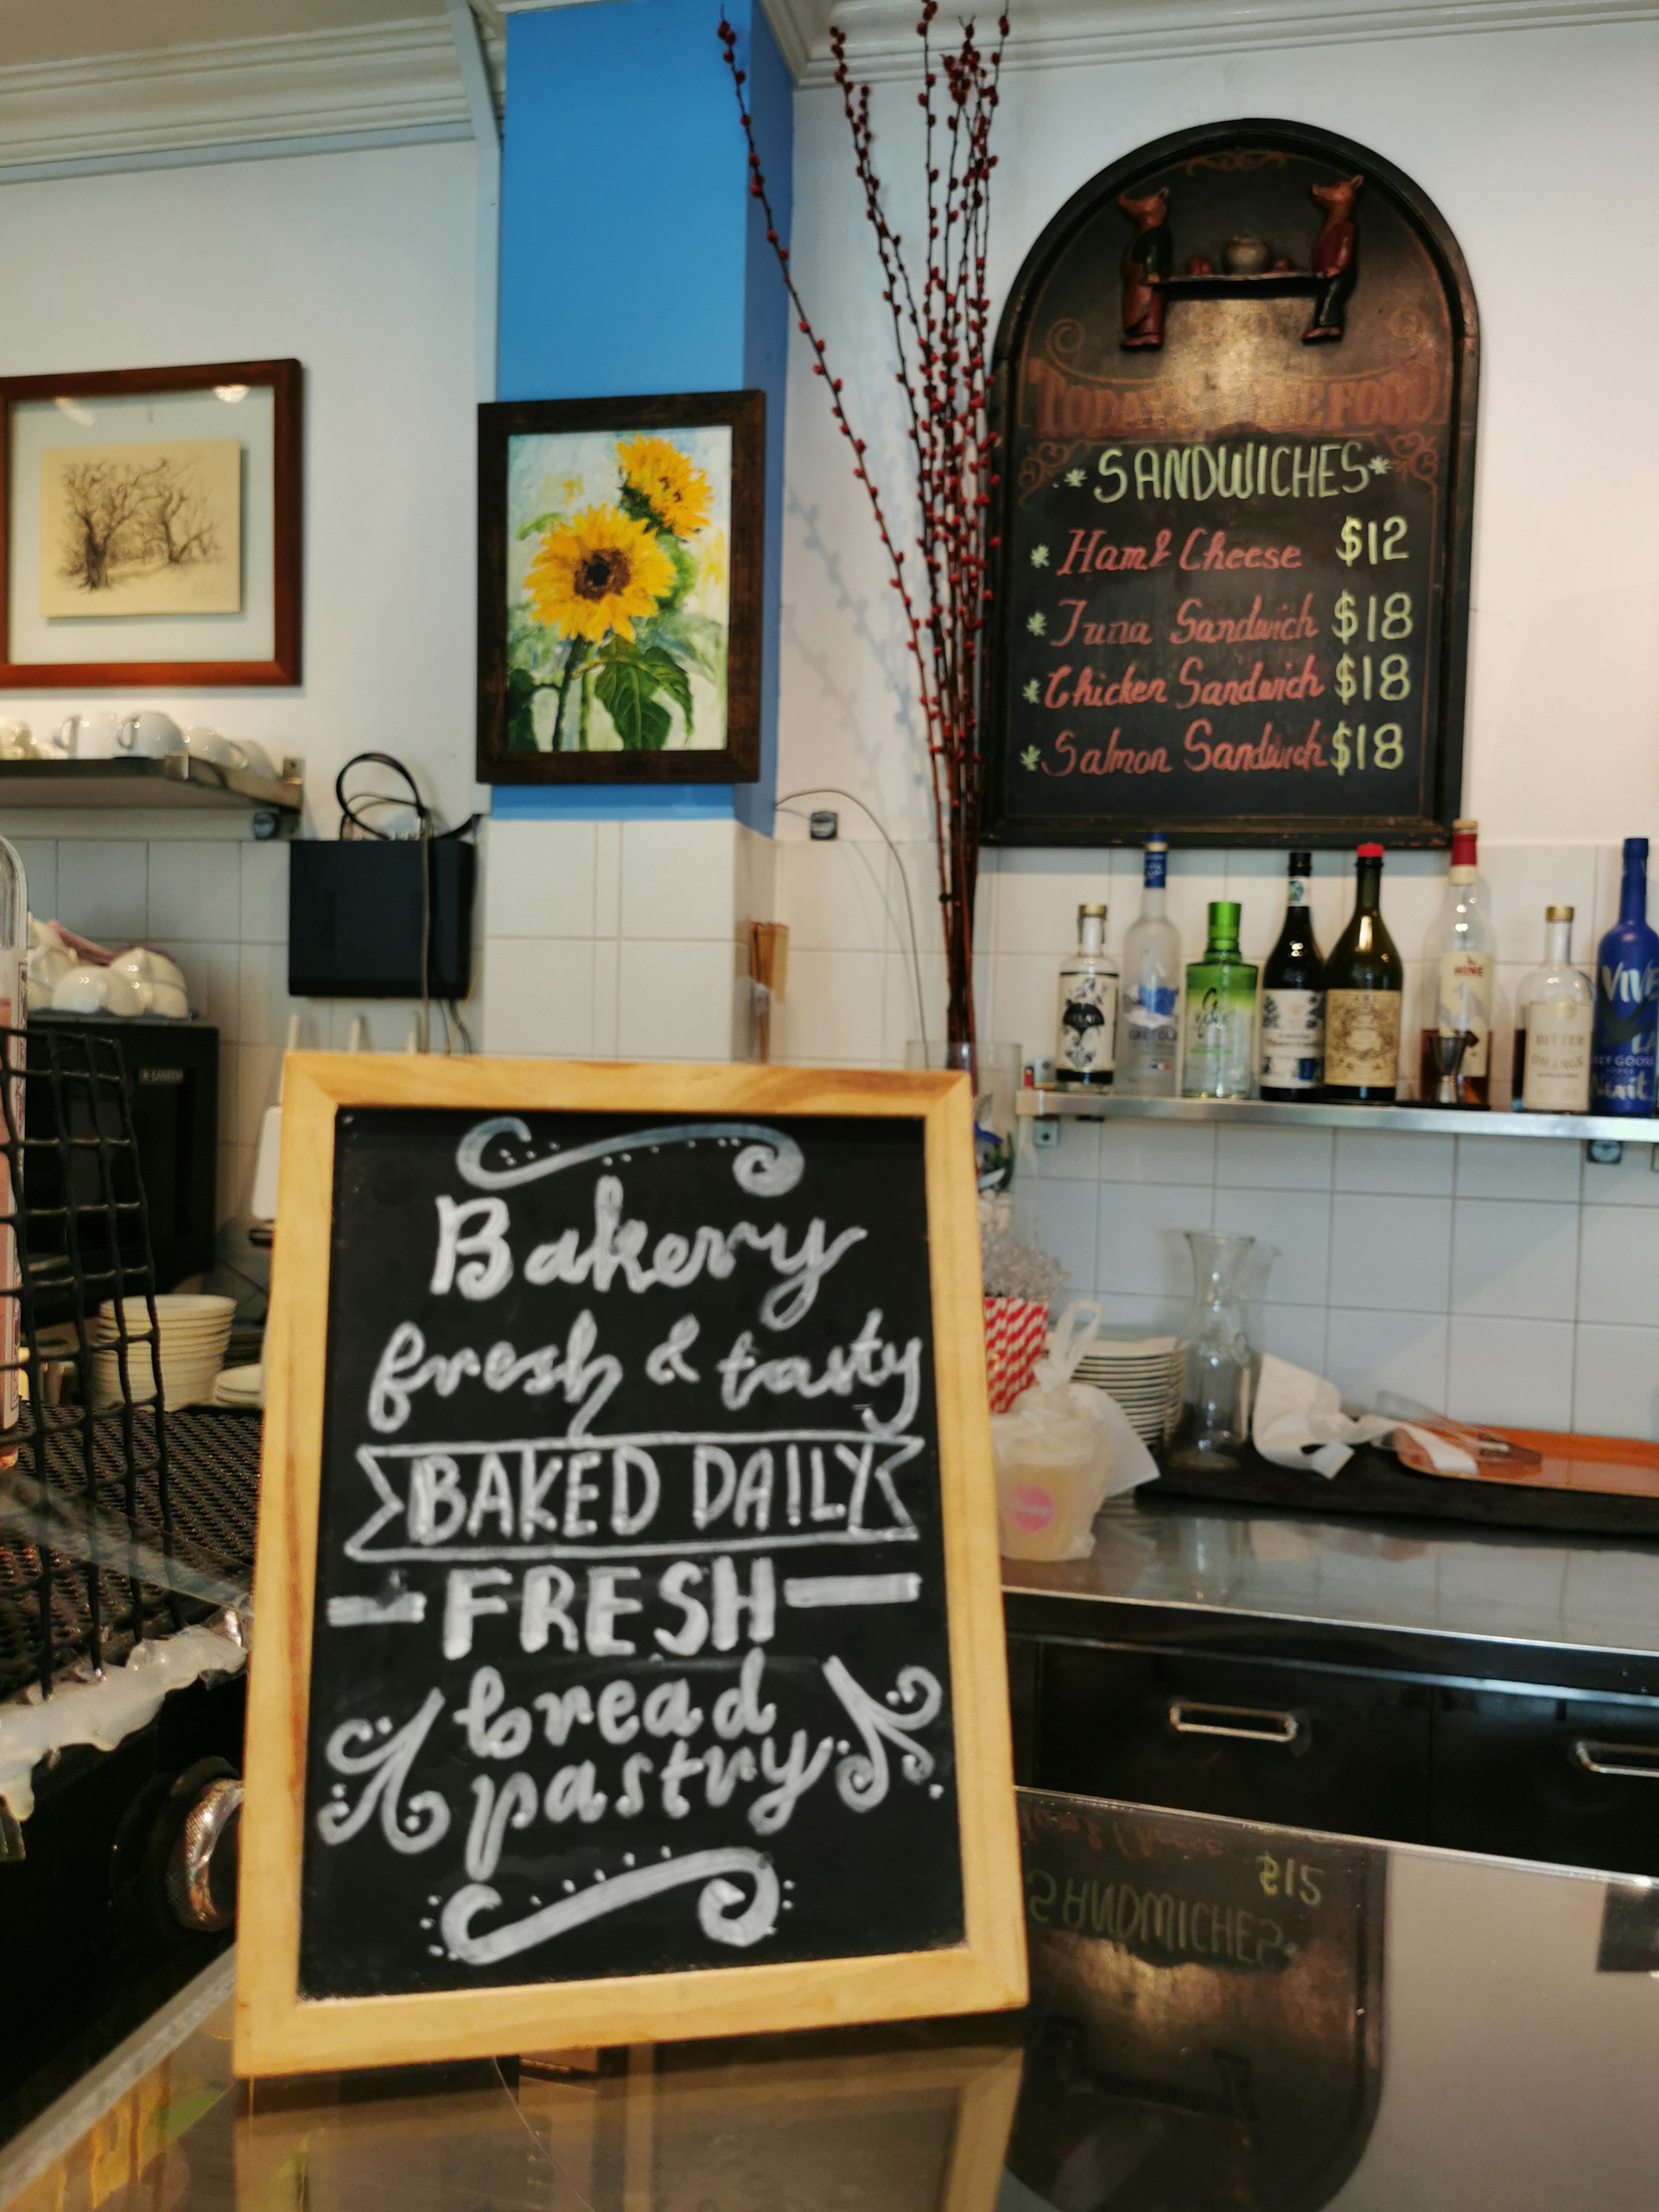 TODAY'S FINE FOOD
SANDWICHES
Ham & Cheese $12
Tuna Sandwich $18
Chicken Sandwich $18
Salmon Sandwich $18
HINE
BITTER
ORANGE
VIVE
LA
Bakery
fresh & tasty
BAKED DAILY
FRESH
bread
pastry